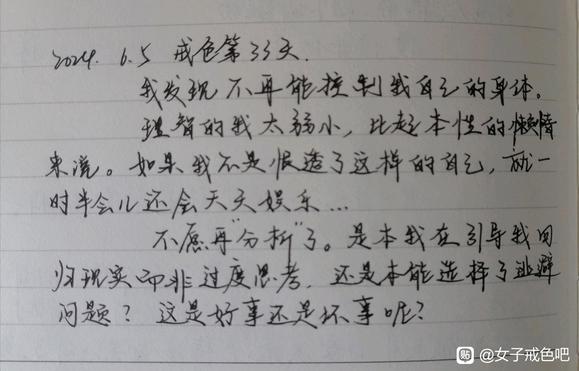 2024. 6.5 戒色第33天.
我发现不再能控制我自己的身体。
理智的我太弱小，比起本性的懒惰
来说。如果我不是恨透了这样的自己，就一
时半会儿还会天天娱乐…
不愿再“分析”了。是本我在引导我回
归现实而非过度思考，还是本能选择了逃避
问题？这是好事还是坏事呢？
贴 @女子戒色吧